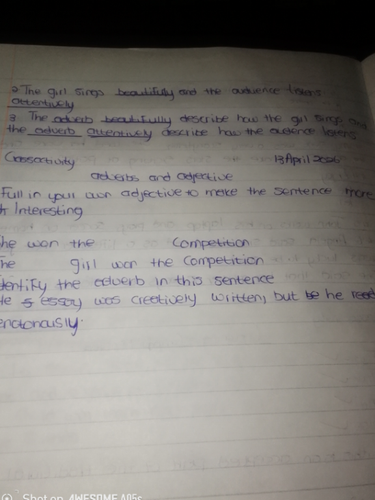 2 The girl sings beautifully and the audience listens
attentively
3 The adverb beautifully describe how the girl sings and
the adverb attentively describe how the audence listens
Classactivity 13 April 2026
adverbs and adjective
Fill in your own adjective to make the sentence more
Interesting
he won the Competition
he girl won the Competition
dentify the adverb in this sentence
He essay was creatively written, but he read
enotonously.
Shot on AWESOME A05s